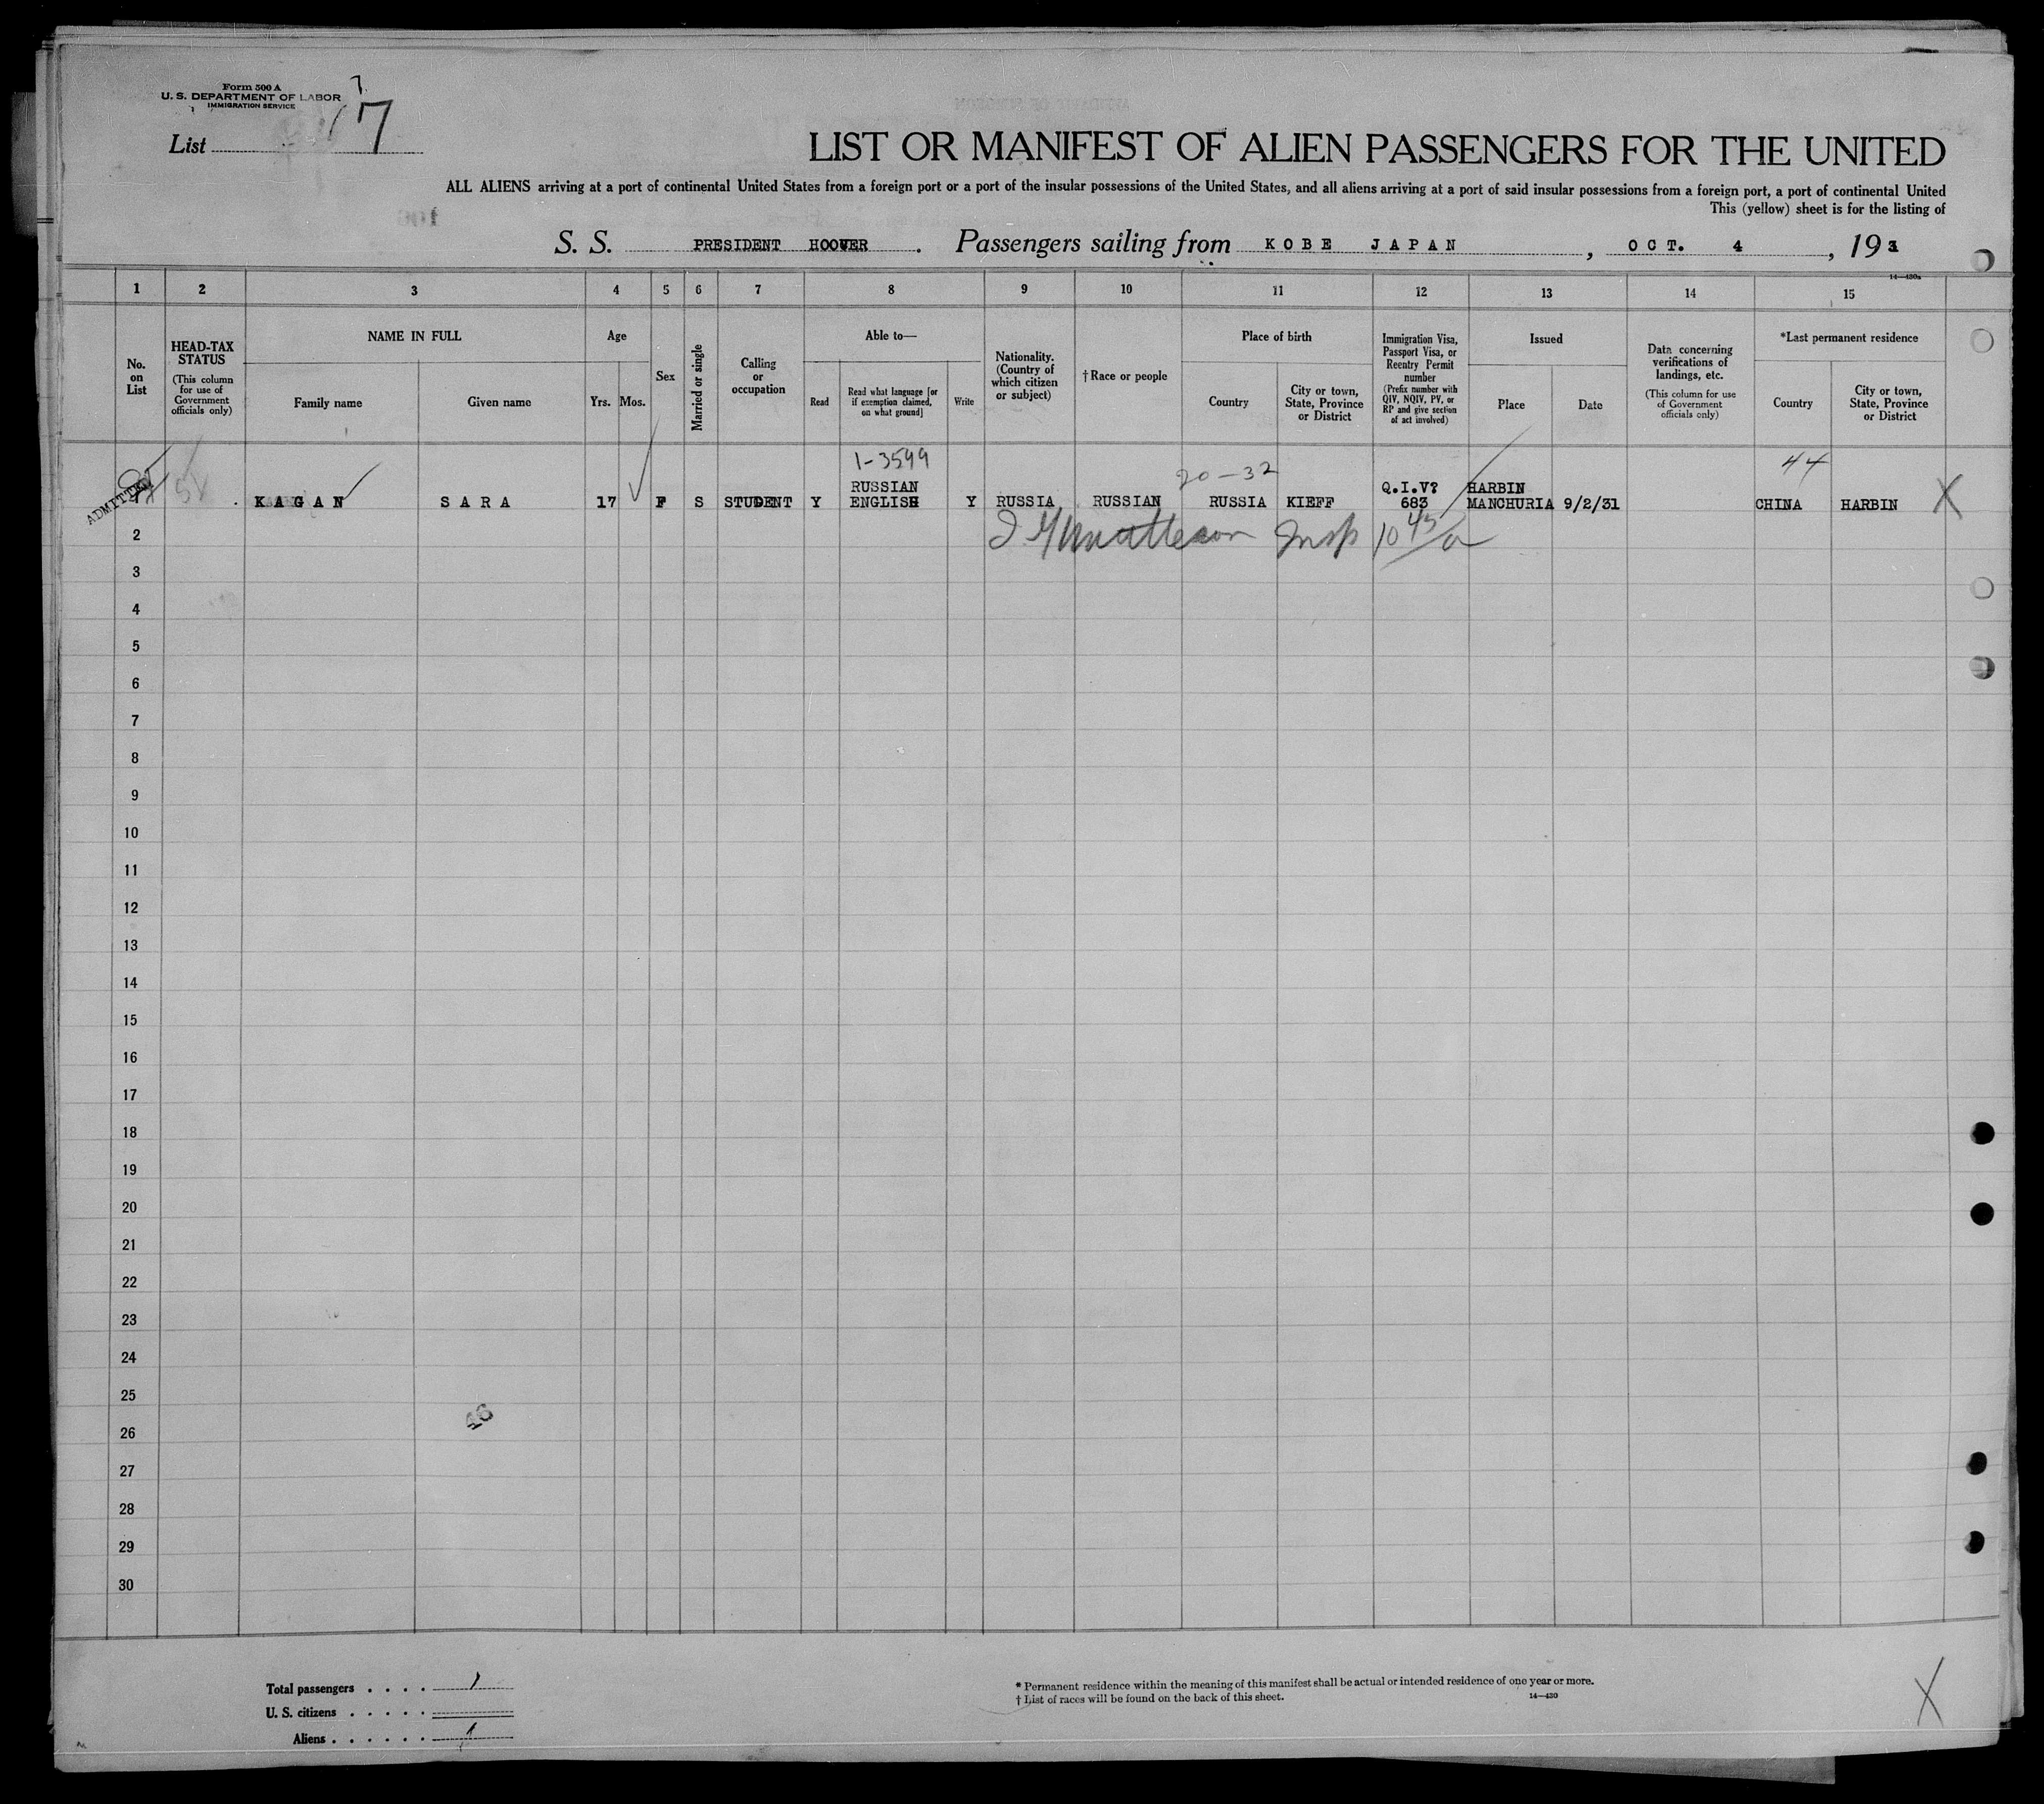 Form 500 A
U. S. DEPARTMENT OF LABOR
IMMIGRATION SERVICE
List 17
LIST OR MANIFEST OF ALIEN PASSENGERS FOR THE UNITED
ALL ALIENS arriving at a port of continental United States from a foreign port or a port of the insular possessions of the United States, and all aliens arriving at a port of said insular possessions from a foreign port, a port of continental United
This (yellow) sheet is for the listing of
S. S. PRESIDENT HOOVER . Passengers sailing from KOBE JAPAN , OCT. 4 , 1931
14—430a
1 2 3 4 5 6 7 8 9 10 11 12 13 14 15
No. on List
HEAD-TAX STATUS
(This column for use of Government officials only)
NAME IN FULL
Family name
Given name
Age
Yrs.
Mos.
Sex
Married or single
Calling or occupation
Able to—
Read
Read what language [or if exemption claimed, on what ground]
Write
Nationality. (Country of which citizen or subject)
†Race or people
Place of birth
Country
City or town, State, Province or District
Immigration Visa, Passport Visa, or Reentry Permit number
(Prefix number with QIV, NQIV, PV, or RP and give section of act involved)
Issued
Place
Date
Data concerning verifications of landings, etc.
(This column for use of Government officials only)
*Last permanent residence
Country
City or town, State, Province or District
1-3599
20-32
44
ADMITTED
RUSSIAN Q.I.V? HARBIN
KAGAN SARA 17 F S STUDENT Y ENGLISH Y RUSSIA RUSSIAN RUSSIA KIEFF 683 MANCHURIA 9/2/31 CHINA HARBIN X
Matteson Insp 10 45/a
2
3
4
5
6
7
8
9
10
11
12
13
14
15
16
17
18
19
20
21
22
23
24
25
26
27
28
29
30
Total passengers . . . . 1
U. S. citizens . . . . .
Aliens . . . . . . 1
* Permanent residence within the meaning of this manifest shall be actual or intended residence of one year or more.
† List of races will be found on the back of this sheet.
14—430
X